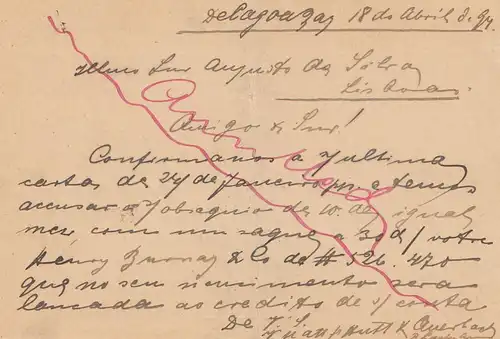 Delagoa Bay 18 de Abril d. 94.
Illmo Snr Augusto da Silva
Lisboa.
Amigo & Snr!
Confirmamos a n/ ultima
carta de 24 de Janeiro e temos
accusar o s/ obsequio de 10. de igual
mez com um saque a 30 d/ vista
Henry Burnay & Co de # 526.470
que no seu vencimento será
lançada ao credito de s/ conta
De V. S.
Auerbach